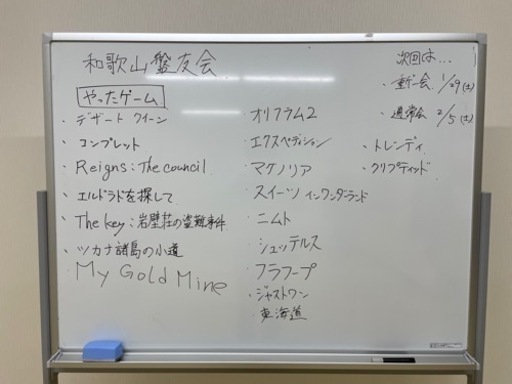 和歌山盤友会
やったゲーム
・デザート クイーン
・コンプレット
・Reigns: The council
・エルドラドを探して
・The key: 岩壁荘の盗難事件
・ツカナ諸島の小道
・My Gold Mine
・オリフラム2
・エクスペディション
・マケノリア
・スイーツ インワンダーランド
・ニムト
・シュッテルス
・フラフープ
・ジャストワン
・東海道
・トレンディ
・クリプティッド
次回は...
・重ゲー会 1/29(土)
・通常会 2/5(土)